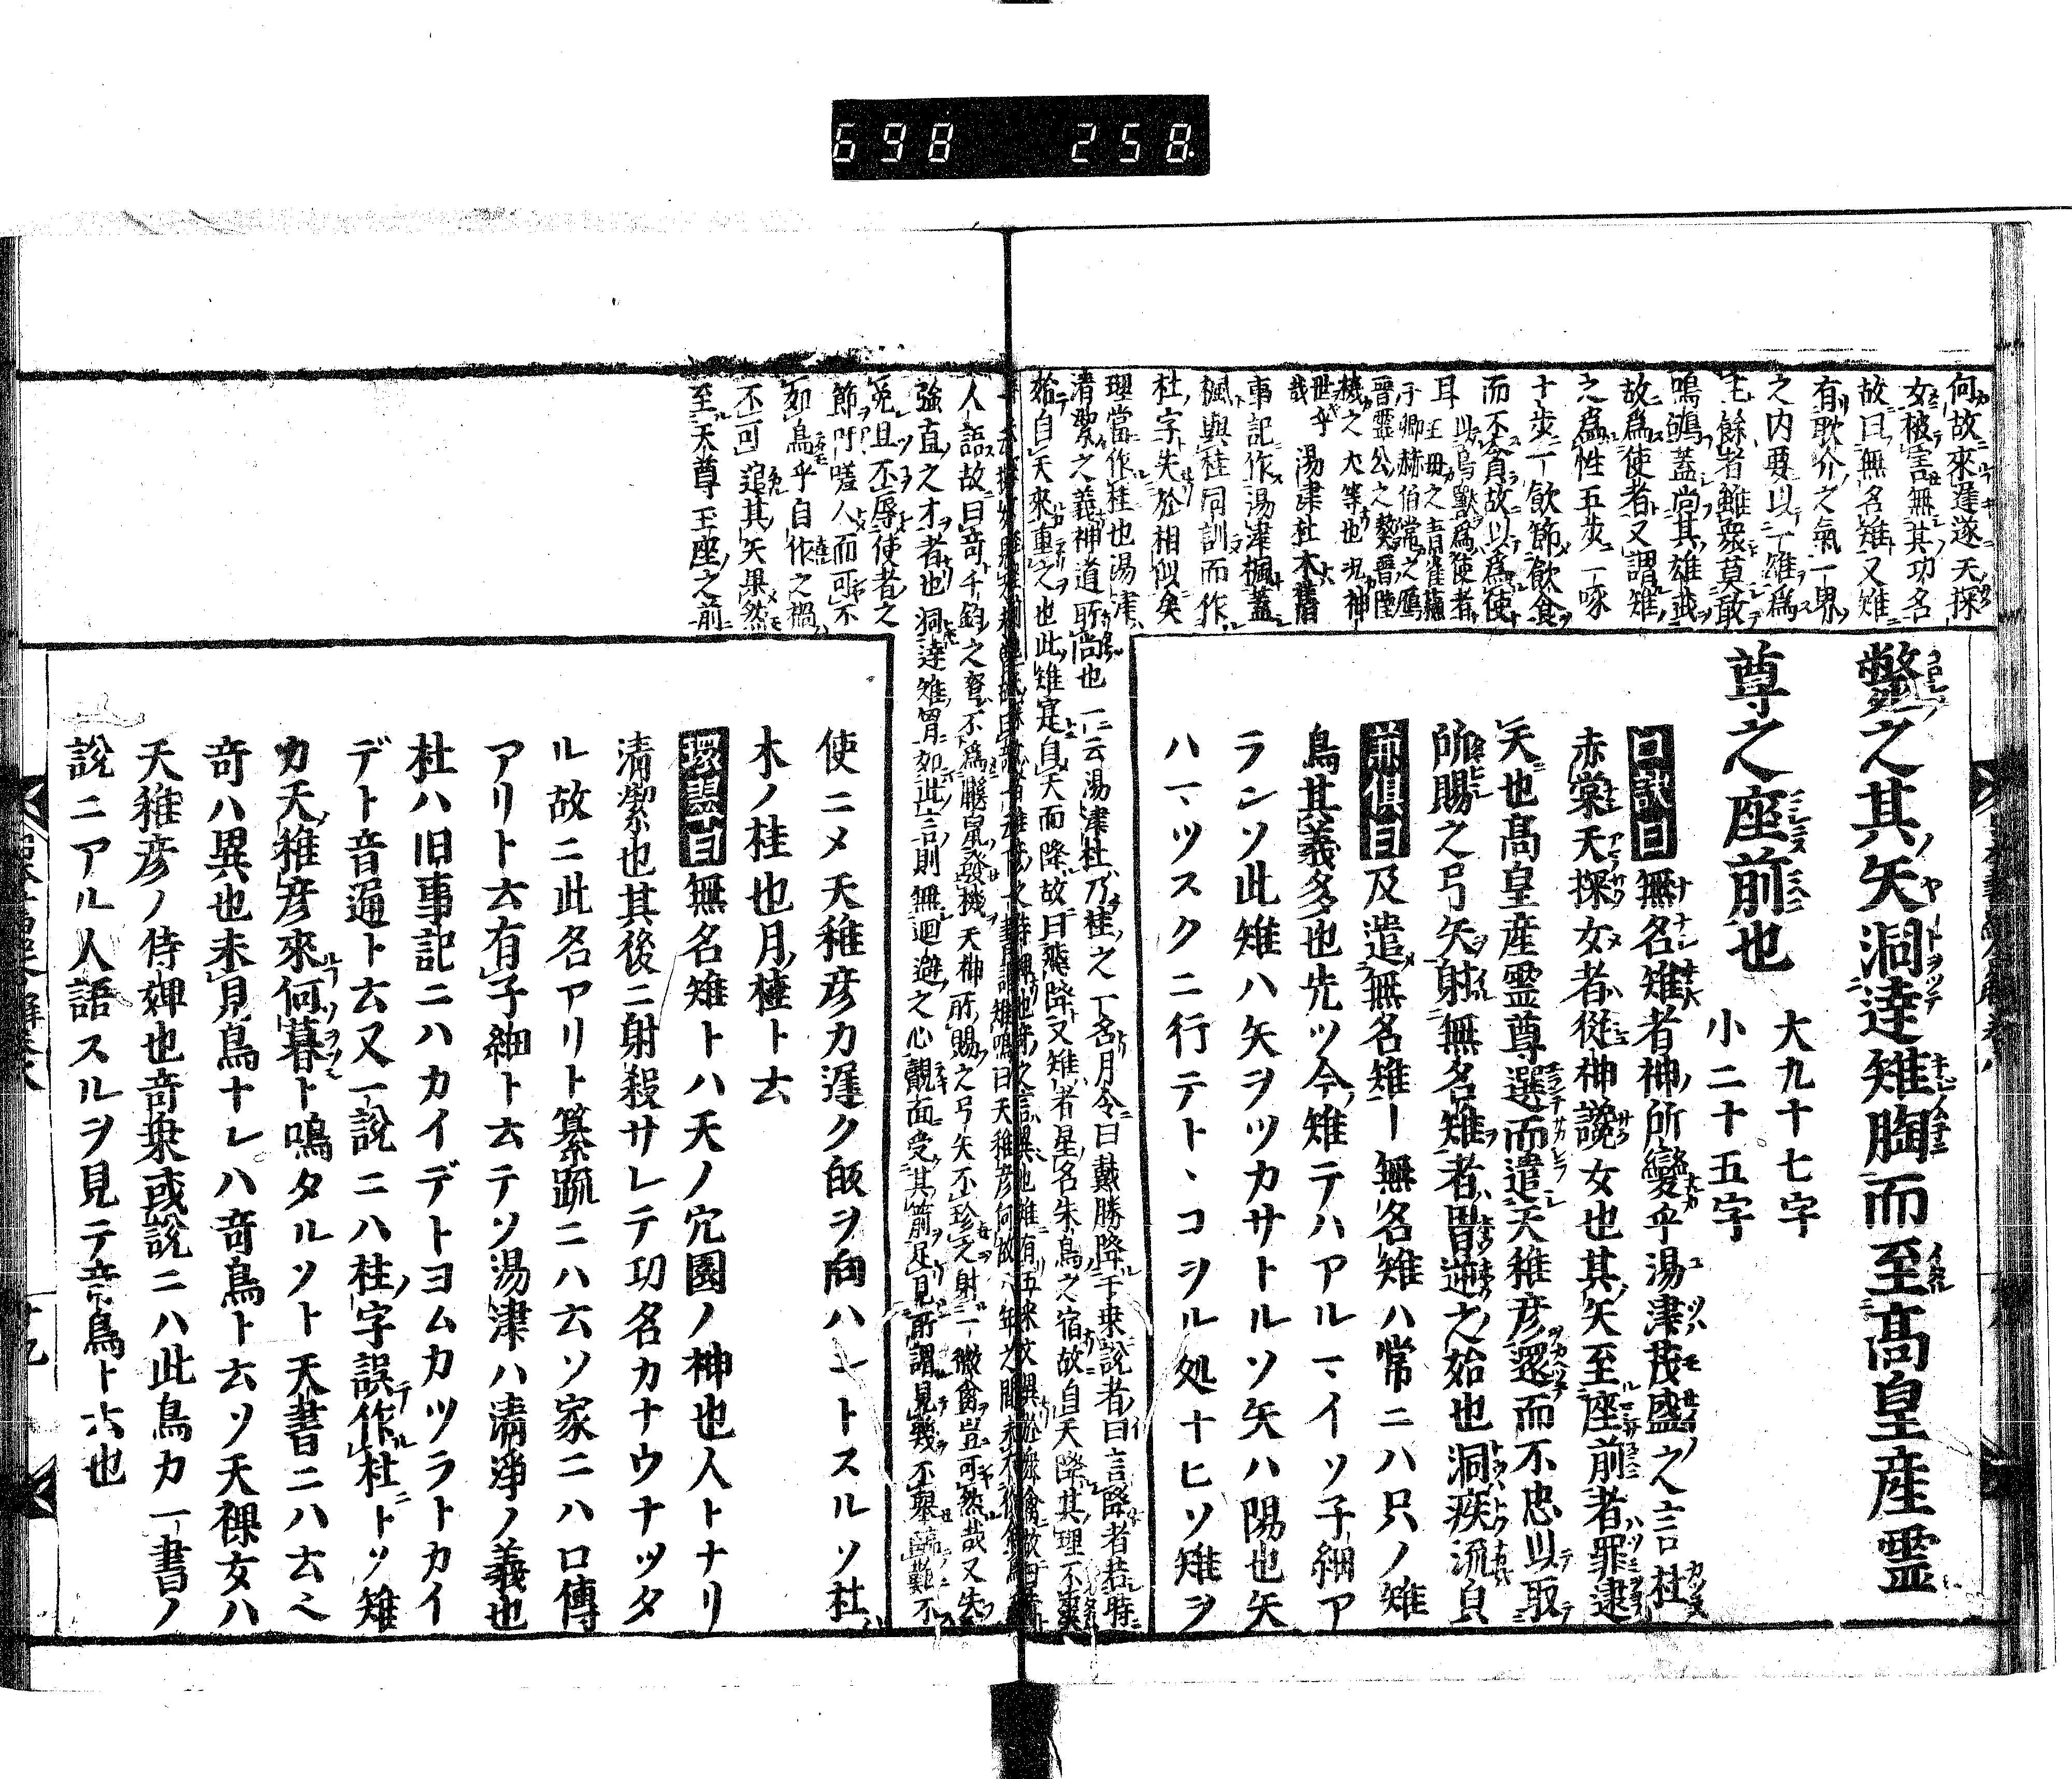 698 258
何故來遲遂天探
女被害無其功名
故曰無名雉又雉
有耿介之氣一界
之内要以一雉爲
長餘者雖衆莫敢
鳴鴝蓋尚其雄武
故爲使者又謂雉
之爲性五步一啄
十步一飲節飲食
而不貪故以爲使
耳以鳥獸爲使者
王母之青雀蘓
子卿赫伯常之鴈
晉靈公之獒晉陸
機之犬等也况神
世乎湯津杜木舊
哉
事記作湯津楓蓋
楓與桂同訓而作
杜字失於相似矣
理當作桂也湯津
清潔之義神道所尚也一云湯津杜乃桂之一名月令曰戴勝降于桒說者曰言降者若時
始自天來重之也此雉寔自天而降故曰飛降又雉者星名朱鳥之宿故自天降其理不
鼈之其矢洞達雉胸而至高皇産霊
尊之座前也
大九十七字
小二十五字
曰訣曰無名雉者神所變乎湯津茂盛之言杜
赤棠天探女者從神讒女也其矢至座前者罪逮
天也高皇産霊尊選而遣天稚彦還而不忠以取
所賜之弓矢射無名雉者背逆之始也洞疾流皃
兼俱曰及遣無名雉ー無名雉ハ常ニハ只ノ雉
鳥其義多也先ツ今雉テハアルマイソ子細ア
ランソ此雉ハ矢ヲツカサトルソ矢ハ陽也矢
ハマツスクニ行テトヽコヲル処ナヒソ雉ヲ
人語故曰奇千鈞之弩不爲鼷鼠發機天神所賜之弓矢不珍之射一微禽豈可然哉又失
強直之才者也洞達雉胷如此言則無迴避之心覿面受其箭足見所謂見義不舉臨難不
免且不辱使者之
節吁嗟人而可不
如鳥乎自作之禍
不可追其矢果然
至天尊玉座之前
使ニメ天稚彦カ遲ク皈ヲ向ハントスルソ杜
木ノ桂也月桂ト云
環翠曰無名雉トハ天ノ穴國ノ神也人トナリ
清潔也其後ニ射殺サレテ功名カナウナツタ
ル故ニ此名アリト纂疏ニハ云ソ家ニハ口傳
アリト云有子細ト云テソ湯津ハ清淨ノ義也
杜ハ旧事記ニハカイデトヨムカツラトカイ
デト音通ト云又一說ニハ桂字誤作杜トソ雉
カ天稚彦來何暮ト鳴タルソト天書ニハ云ヘ
奇ハ異也未見鳥ナレハ奇鳥ト云ソ天探女ハ
天稚彦ノ侍婢也奇衆或說ニハ此鳥カ一書ノ
說ニアル人語スルヲ見テ奇鳥ト云也